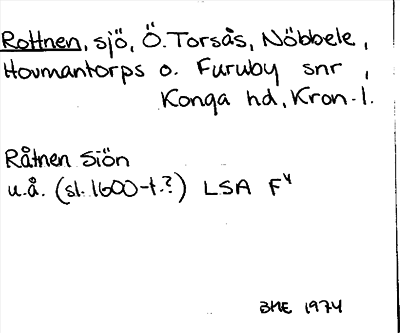 Rottnen, sjö, Ö. Torsås, Nöbbele,
Hovmantorps o. Furuby snr,
Konga hd, Kron. l.
Råtnen Siön
u.å. (sl. 1600-t.?) LSA F4
BME 1974